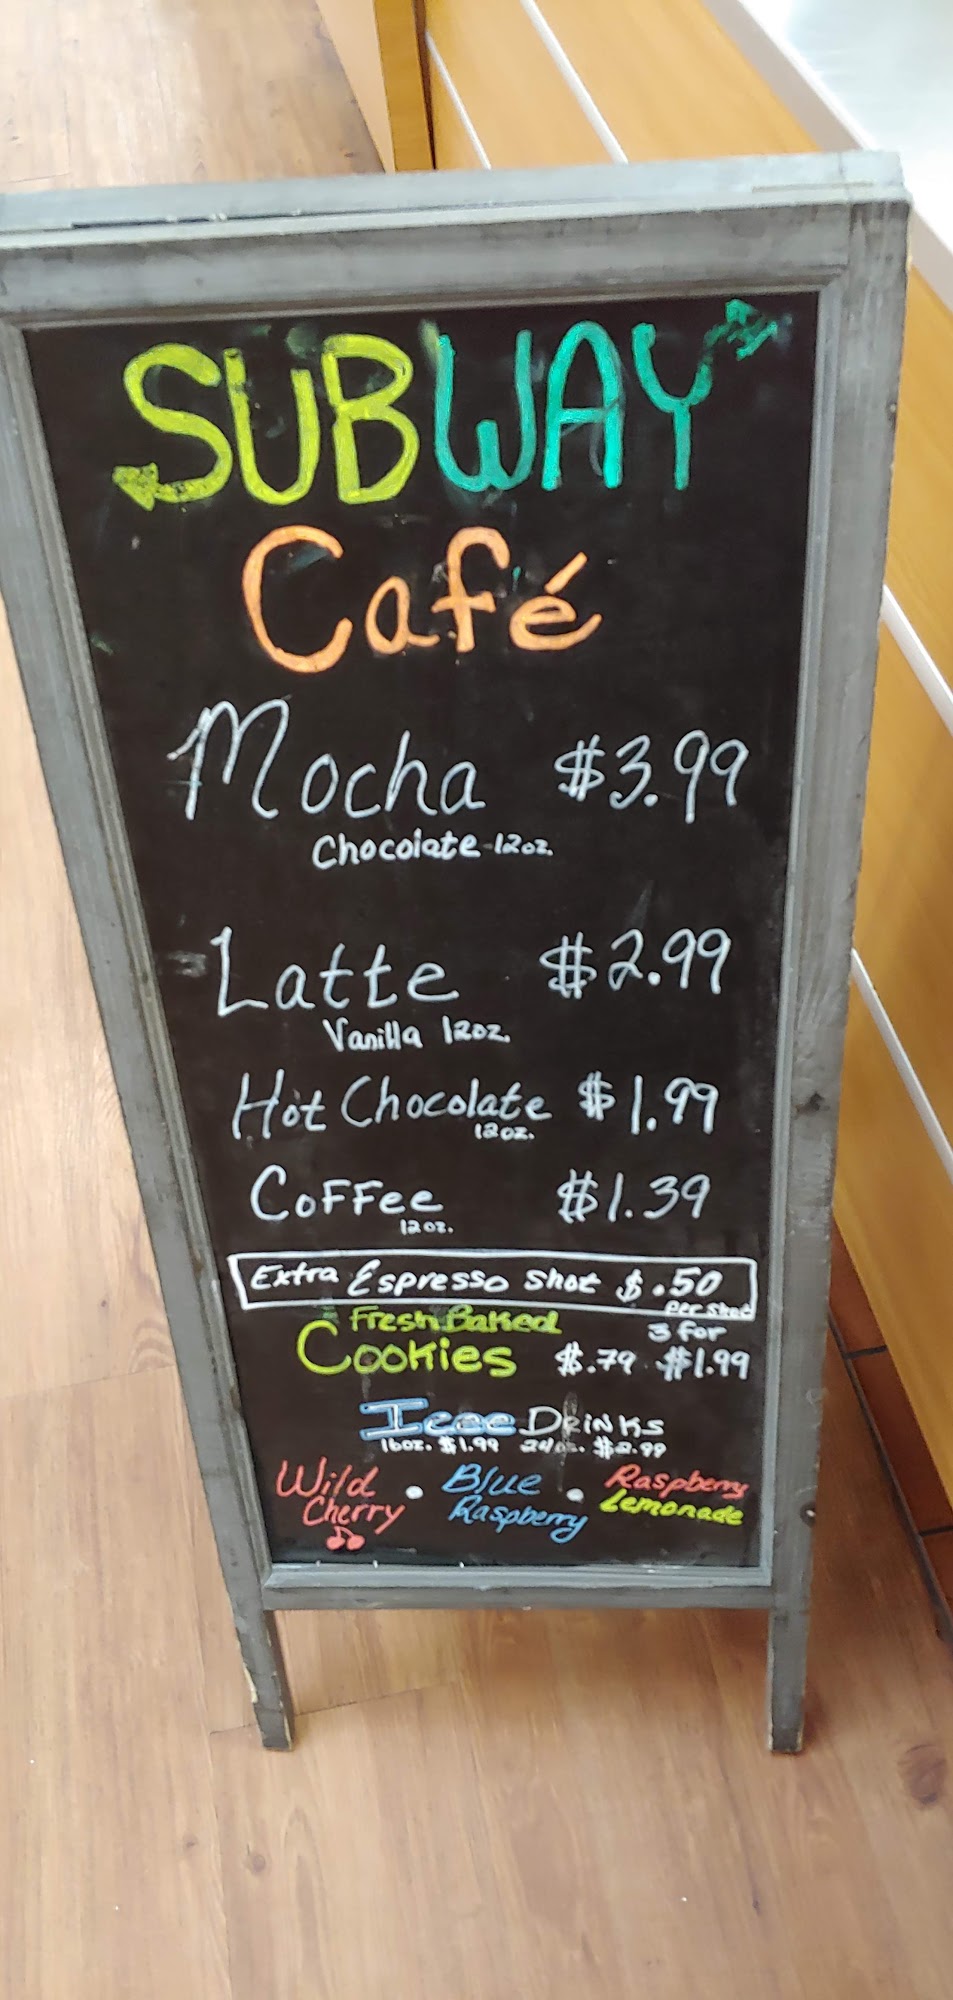 SUBWAY
Café
Mocha $3.99
Chocolate 12oz.
Latte $2.99
Vanilla 12oz.
Hot Chocolate $1.99
12oz.
Coffee $1.39
12oz.
Extra Espresso shot $.50
per shot
Fresh Baked 3 for
Cookies $.79 $1.99
Icee Drinks
16oz. $1.99 24oz. $2.99
Wild • Blue • Raspberry
Cherry Raspberry Lemonade